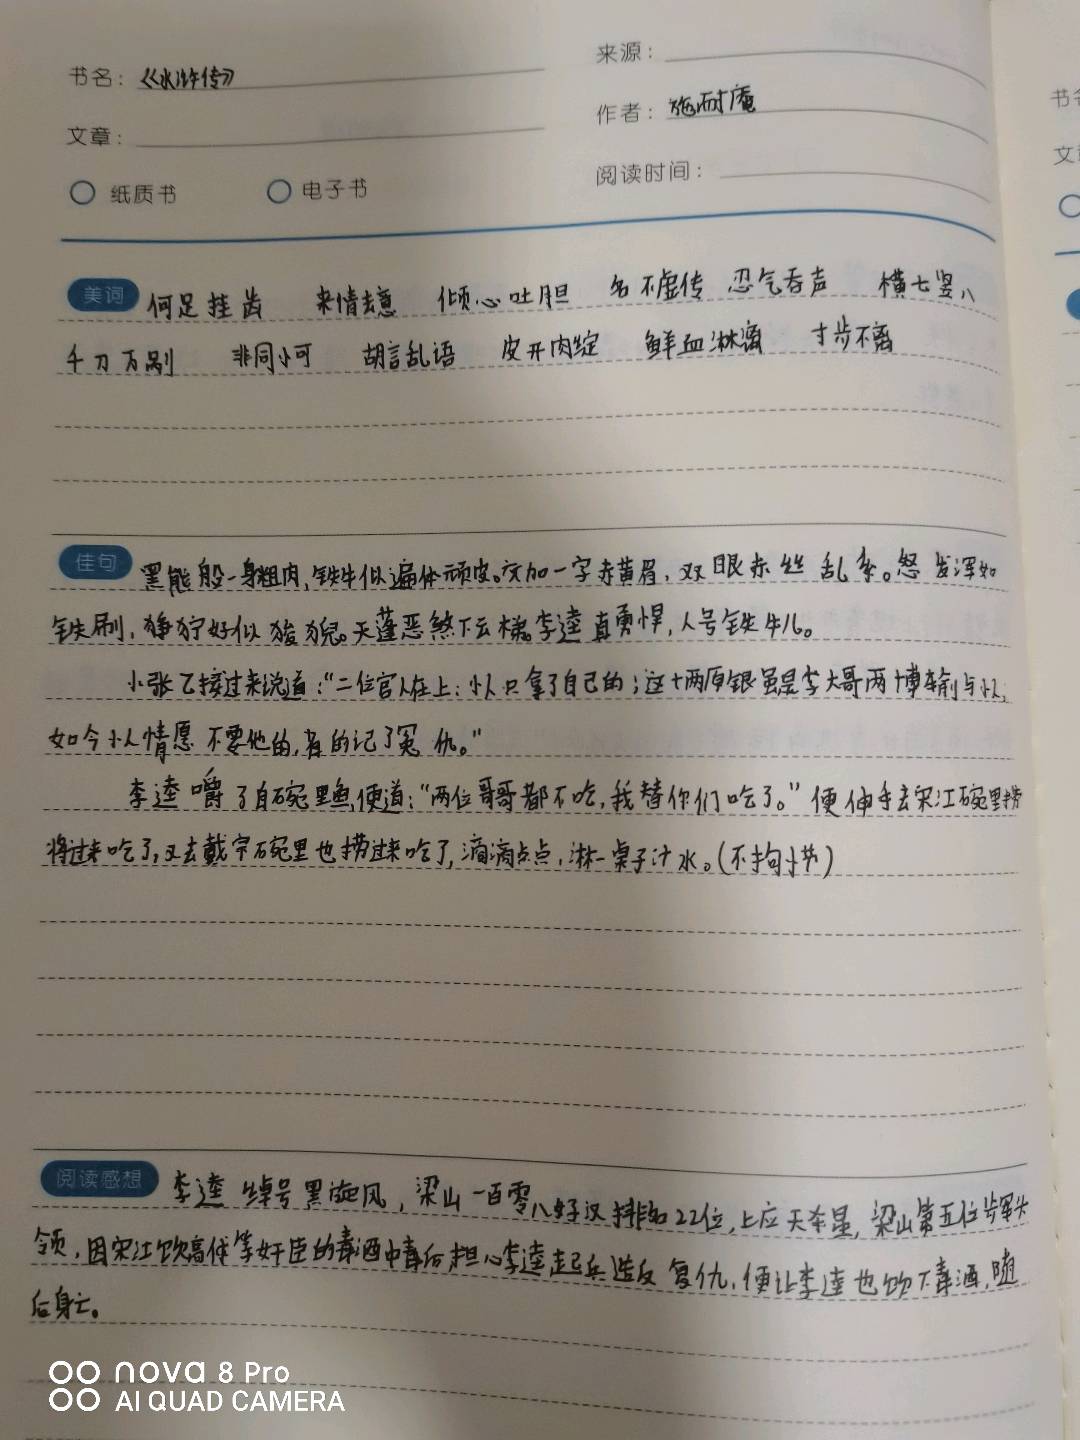 书名：《水浒传》
来源：
作者：施耐庵
文章：
阅读时间：
纸质书 电子书
美词 何足挂齿 来情去意 倾心吐胆 名不虚传 忍气吞声 横七竖八
千刀万剐 非同小可 胡言乱语 皮开肉绽 鲜血淋漓 寸步不离
佳句 黑熊般一身粗肉，铁牛似遍体顽皮。交加一字赤黄眉，双眼赤丝乱系。怒发浑如
铁刷，狰狞好似狻猊。天蓬恶煞下云梯。李逵真勇悍，人号铁牛儿。
小张乙接过来说道：“二位官人在上：小人只拿了自己的；这十两原银虽是李大哥两博输与小人，
如今小人情愿不要他的，省的记了冤仇。”
李逵嚼了自碗里鱼，便道：“两位哥哥都不吃，我替你们吃了。”便伸手去宋江碗里捞
将过来吃了，又去戴宗碗里也捞过来吃了，滴滴点点，淋一桌子汁水。（不拘小节）
阅读感想 李逵绰号黑旋风，梁山一百零八好汉排的22位，上应天杀星，梁山第五位步军头
领，因宋江饮高俅等奸臣的毒酒中毒后担心李逵起兵造反复仇，便让李逵也饮下毒酒，随
后身亡。
nova 8 Pro
AI QUAD CAMERA
书名
文章